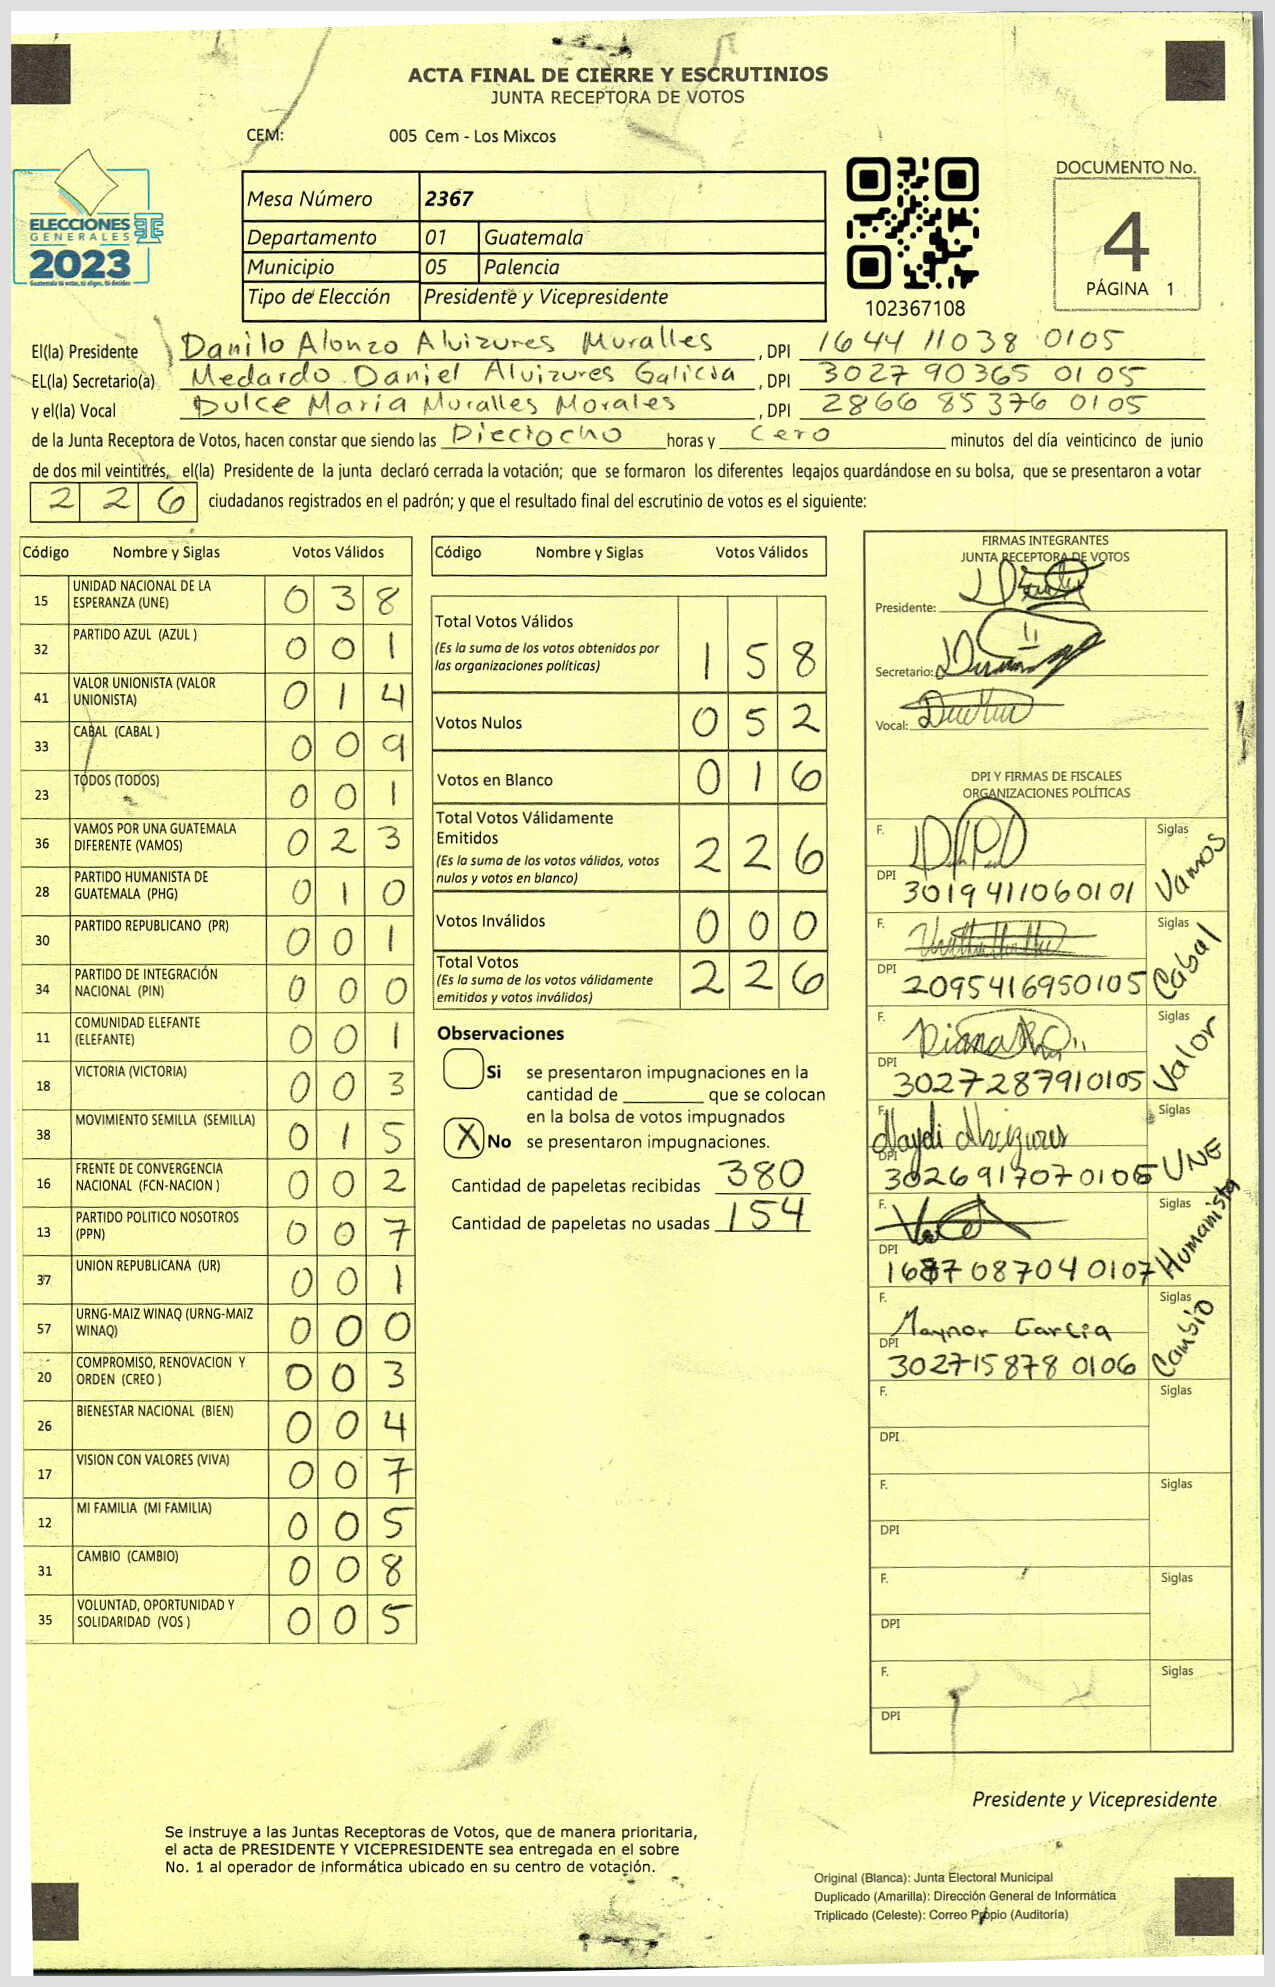 ACTA FINAL DE CIERRE Y ESCRUTINIOS
JUNTA RECEPTORA DE VOTOS
CEM: 005 Cem - Los Mixcos
ELECCIONES
GENERALES
2023
Guatemala tú votas, tú eliges, tú decides
Mesa Número 2367
Departamento 01 Guatemala
Municipio 05 Palencia
Tipo de Elección Presidente y Vicepresidente
102367108
DOCUMENTO No.
4
PÁGINA 1
El(la) Presidente Danilo Alonzo Alvizures Muralles , DPI 1644 11038 0105
EL(la) Secretario(a) Medardo Daniel Alvizures Galicia , DPI 3027 90365 0105
y el(la) Vocal Dulce María Muralles Morales , DPI 2866 85376 0105
de la Junta Receptora de Votos, hacen constar que siendo las Dieciocho horas y Cero minutos del día veinticinco de junio
de dos mil veintitrés, el(la) Presidente de la junta declaró cerrada la votación; que se formaron los diferentes legajos guardándose en su bolsa, que se presentaron a votar
226 ciudadanos registrados en el padrón; y que el resultado final del escrutinio de votos es el siguiente:
Código Nombre y Siglas Votos Válidos
15 UNIDAD NACIONAL DE LA ESPERANZA (UNE) 038
32 PARTIDO AZUL (AZUL ) 001
41 VALOR UNIONISTA (VALOR UNIONISTA) 014
33 CABAL (CABAL ) 009
23 TODOS (TODOS) 001
36 VAMOS POR UNA GUATEMALA DIFERENTE (VAMOS) 023
28 PARTIDO HUMANISTA DE GUATEMALA (PHG) 010
30 PARTIDO REPUBLICANO (PR) 001
34 PARTIDO DE INTEGRACIÓN NACIONAL (PIN) 000
11 COMUNIDAD ELEFANTE (ELEFANTE) 001
18 VICTORIA (VICTORIA) 003
38 MOVIMIENTO SEMILLA (SEMILLA) 015
16 FRENTE DE CONVERGENCIA NACIONAL (FCN-NACION ) 002
13 PARTIDO POLITICO NOSOTROS (PPN) 007
37 UNION REPUBLICANA (UR) 001
57 URNG-MAIZ WINAQ (URNG-MAIZ WINAQ) 000
20 COMPROMISO, RENOVACION Y ORDEN (CREO ) 003
26 BIENESTAR NACIONAL (BIEN) 004
17 VISION CON VALORES (VIVA) 007
12 MI FAMILIA (MI FAMILIA) 005
31 CAMBIO (CAMBIO) 008
35 VOLUNTAD, OPORTUNIDAD Y SOLIDARIDAD (VOS ) 005
Código Nombre y Siglas Votos Válidos
Total Votos Válidos 158
(Es la suma de los votos obtenidos por
las organizaciones políticas)
Votos Nulos 052
Votos en Blanco 016
Total Votos Válidamente
Emitidos 226
(Es la suma de los votos válidos, votos
nulos y votos en blanco)
Votos Inválidos 000
Total Votos 226
(Es la suma de los votos válidamente
emitidos y votos inválidos)
Observaciones
Si se presentaron impugnaciones en la
cantidad de ________ que se colocan
en la bolsa de votos impugnados
X No se presentaron impugnaciones.
Cantidad de papeletas recibidas 380
Cantidad de papeletas no usadas 154
FIRMAS INTEGRANTES
JUNTA RECEPTORA DE VOTOS
Presidente:
Secretario:
Vocal:
DPI Y FIRMAS DE FISCALES
ORGANIZACIONES POLÍTICAS
F. Siglas Vamos
DPI 3019 41106 0101
F. Siglas Cabal
DPI 2095416950105
F. Siglas Valor
DPI 3027287910105
F. Haydi Alvizures Siglas UNE
DPI 302691707010
F. Siglas Humanista
DPI 087040107
F. Maynor Garcia Siglas Cambio
DPI 302715878 0106
F. Siglas
DPI
F. Siglas
DPI
F. Siglas
DPI
F. Siglas
DPI
Presidente y Vicepresidente
Se instruye a las Juntas Receptoras de Votos, que de manera prioritaria,
el acta de PRESIDENTE Y VICEPRESIDENTE sea entregada en el sobre
No. 1 al operador de informática ubicado en su centro de votación.
Original (Blanca): Junta Electoral Municipal
Duplicado (Amarilla): Dirección General de Informática
Triplicado (Celeste): Correo Propio (Auditoría)